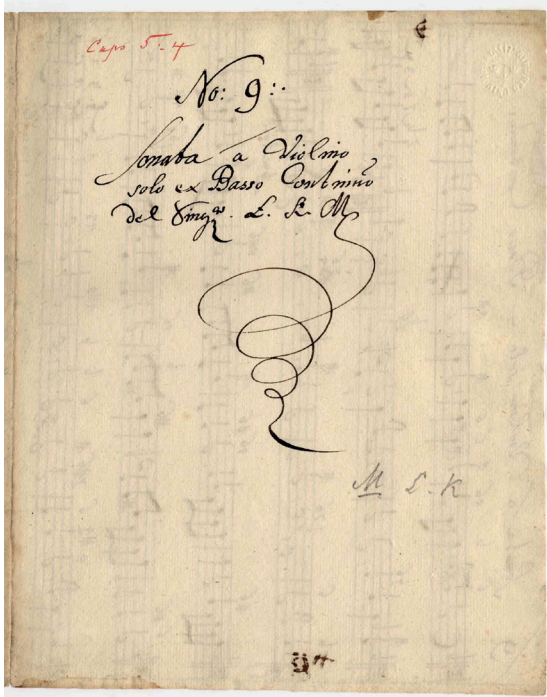 Caps 5:4
No: 9:.
Sonata a Violino
solo ex Basso Continuo
del Singre. L. K. M
M L. K
9